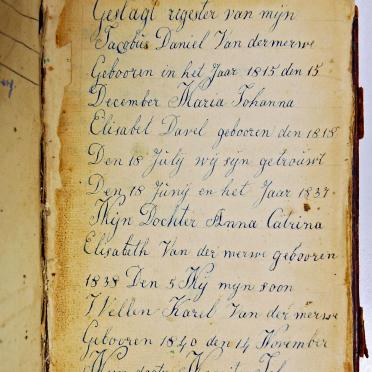 Geslagt rigester van mijn
Jacobus Daniel Van der merwe
Gebooren in het Jaar 1815 den 15
December Maria Johanna
Elisabet Davel gebooren den 1818
Den 18 Julij wij sijn getrouwt
Den 18 Junij en het Jaar 1837
Mijn Dochter Anna Catrina
Elisabeth Van der merwe gebooren
1838 Den 5 Mij mijn soon
Willem Karel Van der merwe
Gebooren 1840 den 14 November